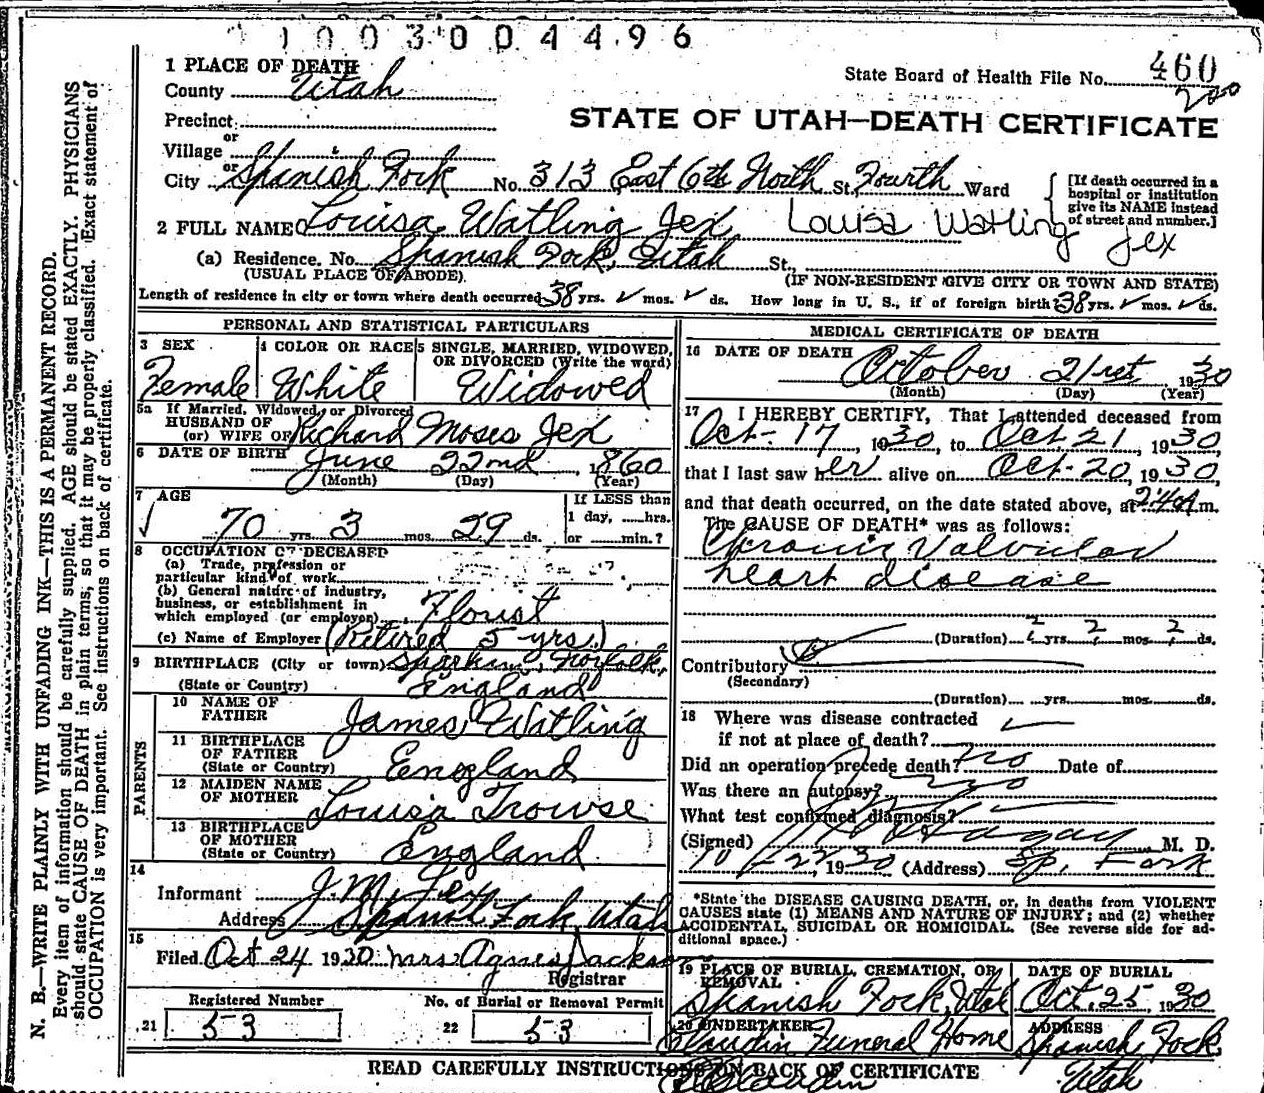 1003004496
1 PLACE OF DEATH
County Utah
State Board of Health File No. 460
Precinct
STATE OF UTAH—DEATH CERTIFICATE
or
Village
or
City Spanish Fork No. 313 East 6th North St. Fourth Ward
[If death occurred in a
hospital or institution
give its NAME instead
of street and number.]
2 FULL NAME Louisa Watling Jex Louisa Watling Jex
(a) Residence. No. Spanish Fork, Utah St.
(USUAL PLACE OF ABODE) (IF NON-RESIDENT GIVE CITY OR TOWN AND STATE)
Length of residence in city or town where death occurred 38 yrs. ✓ mos. ✓ ds. How long in U. S., if of foreign birth? 38 yrs. ✓ mos. ✓ ds.
PERSONAL AND STATISTICAL PARTICULARS
3 SEX
Female
4 COLOR OR RACE
White
5 SINGLE, MARRIED, WIDOWED,
OR DIVORCED (Write the word)
Widowed
5a If Married, Widowed, or Divorced
HUSBAND OF
(or) WIFE OF Richard Moses Jex
6 DATE OF BIRTH June 22nd, 1860
(Month) (Day) (Year)
7 AGE
70 yrs. 3 mos. 29 ds.
If LESS than
1 day, ......hrs.
or ......min.?
8 OCCUPATION OF DECEASED
(a) Trade, profession or
particular kind of work
(b) General nature of industry,
business, or establishment in
which employed (or employer) Florist
(c) Name of Employer (Retired 5 yrs.)
9 BIRTHPLACE (City or town) Norfolk,
(State or Country) England
PARENTS
10 NAME OF
FATHER James Watling
11 BIRTHPLACE
OF FATHER
(State or Country) England
12 MAIDEN NAME
OF MOTHER Louisa Trowse
13 BIRTHPLACE
OF MOTHER
(State or Country) England
14
Informant J. M. Jex
Address Spanish Fork, Utah
15
Filed Oct 24 1930 Mrs Agnes Jackson
Registrar
Registered Number
21 53
No. of Burial or Removal Permit
22 53
MEDICAL CERTIFICATE OF DEATH
16 DATE OF DEATH October 21st, 1930
(Month) (Day) (Year)
17 I HEREBY CERTIFY, That I attended deceased from
Oct. 17, 1930, to Oct. 21, 1930
that I last saw her alive on Oct. 20, 1930,
and that death occurred, on the date stated above, at m.
The CAUSE OF DEATH* was as follows:
Chronic Valvular
heart disease
(Duration) ? yrs. ? mos. ? ds.
Contributory
(Secondary)
(Duration) yrs. mos. ds.
18 Where was disease contracted
if not at place of death?
Did an operation precede death? no Date of
Was there an autopsy? no
What test confirmed diagnosis?
(Signed) Hagan M. D.
10-22, 1930 (Address) Sp. Fork
*State the DISEASE CAUSING DEATH, or, in deaths from VIOLENT
CAUSES state (1) MEANS AND NATURE OF INJURY; and (2) whether
ACCIDENTAL, SUICIDAL OR HOMICIDAL. (See reverse side for ad-
ditional space.)
19 PLACE OF BURIAL, CREMATION, OR
REMOVAL
Spanish Fork, Utah
DATE OF BURIAL
Oct. 25 1930
20 UNDERTAKER
Claudin Funeral Home
ADDRESS
Spanish Fork,
Utah
READ CAREFULLY INSTRUCTIONS ON BACK OF CERTIFICATE
N. B.—WRITE PLAINLY WITH UNFADING INK—THIS IS A PERMANENT RECORD.
Every item of information should be carefully supplied. AGE should be stated EXACTLY. PHYSICIANS
should state CAUSE OF DEATH in plain terms, so that it may be properly classified. Exact statement of
OCCUPATION is very important. See instructions on back of certificate.